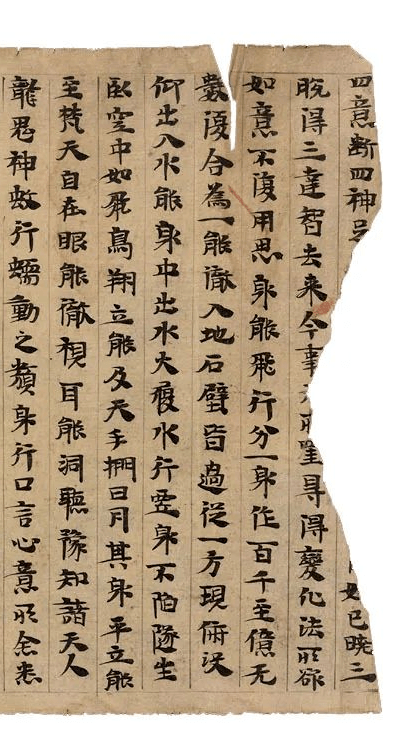 四意断四神足 已曉三
曉淂三達智去来今事无所罣㝵淂變化法所欲
如意不復用思身能飛行分一身作百千至億无
數復合為一能徹入地石壁皆過從一方現俯没
仰出入水能身中出水火履水行虛身不陷墜坐
臥空中如飛鳥翔立能及天手捫日月其身平立能
至梵天自在眼能徹視耳能洞聽豫知諸天人
龍鬼神蚑行蠕動之類身行口言心意所念悉